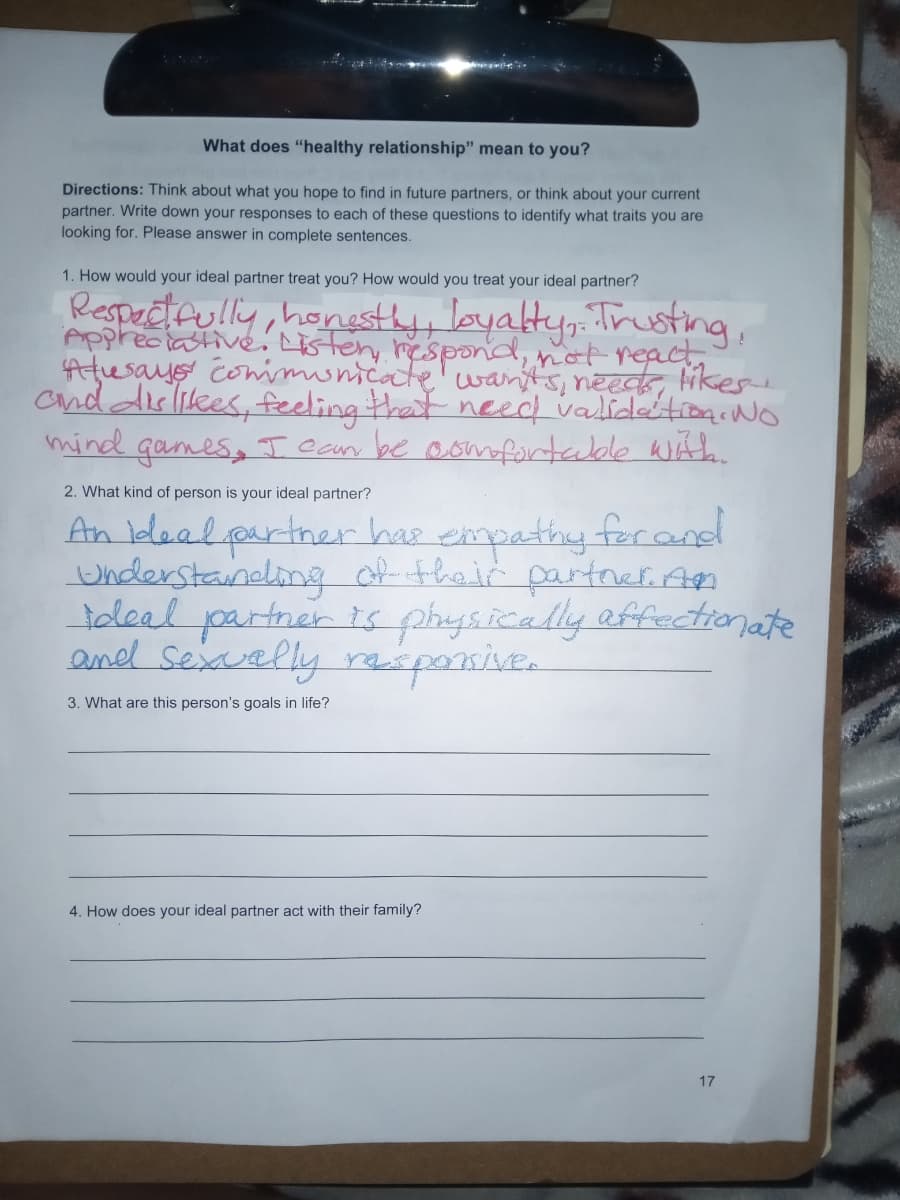 What does “healthy relationship” mean to you?
Directions: Think about what you hope to find in future partners, or think about your current
partner. Write down your responses to each of these questions to identify what traits you are
looking for. Please answer in complete sentences.
1. How would your ideal partner treat you? How would you treat your ideal partner?
Respectfully, honestly, loyalty, Trusting,
Appreciative. Listen, respond, not react
communicate wants, needs, likes
and dislikes, feeling that need validation. No
mind games, I can be comfortable with.
2. What kind of person is your ideal partner?
An ideal partner has empathy for and
Understanding of their partner. An
ideal partner is physically affectionate
and sexually responsive.
3. What are this person's goals in life?
4. How does your ideal partner act with their family?
17